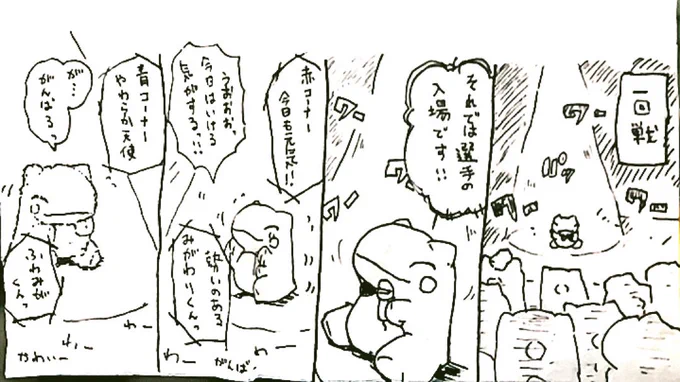 一回戦
パッ
ワー
ワー
ワー
ワー
それでは選手の
入場です!!
赤コーナー
今日も元気!!
勢いのある
みがわりくんっ
うおおお、
今日はいける
気がするっ!!
わー
がんば
わー
青コーナー
やわらか天使
ふわみが
くんっ
が…
がんばる
わー
わー
やわいー